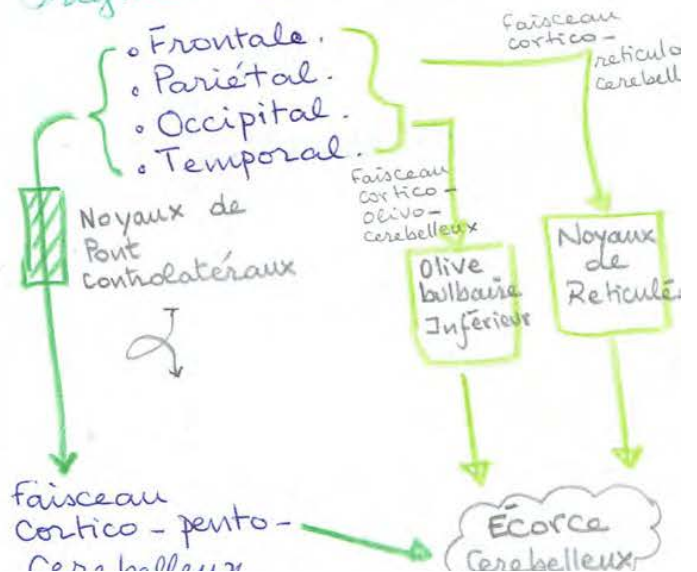 • Frontale.
• Pariétal.
• Occipital.
• Temporal.
Faisceau
cortico-
cerebell
Faisceau
cortico-
olivo-
cerebelleux
Noyaux de
Pont
controlatéraux
Olive
bulbaire
Inférieur
Noyaux
de
Reticulés
Faisceau
Cortico-pento-
Cerebelleux
Écorce
Cerebelleux